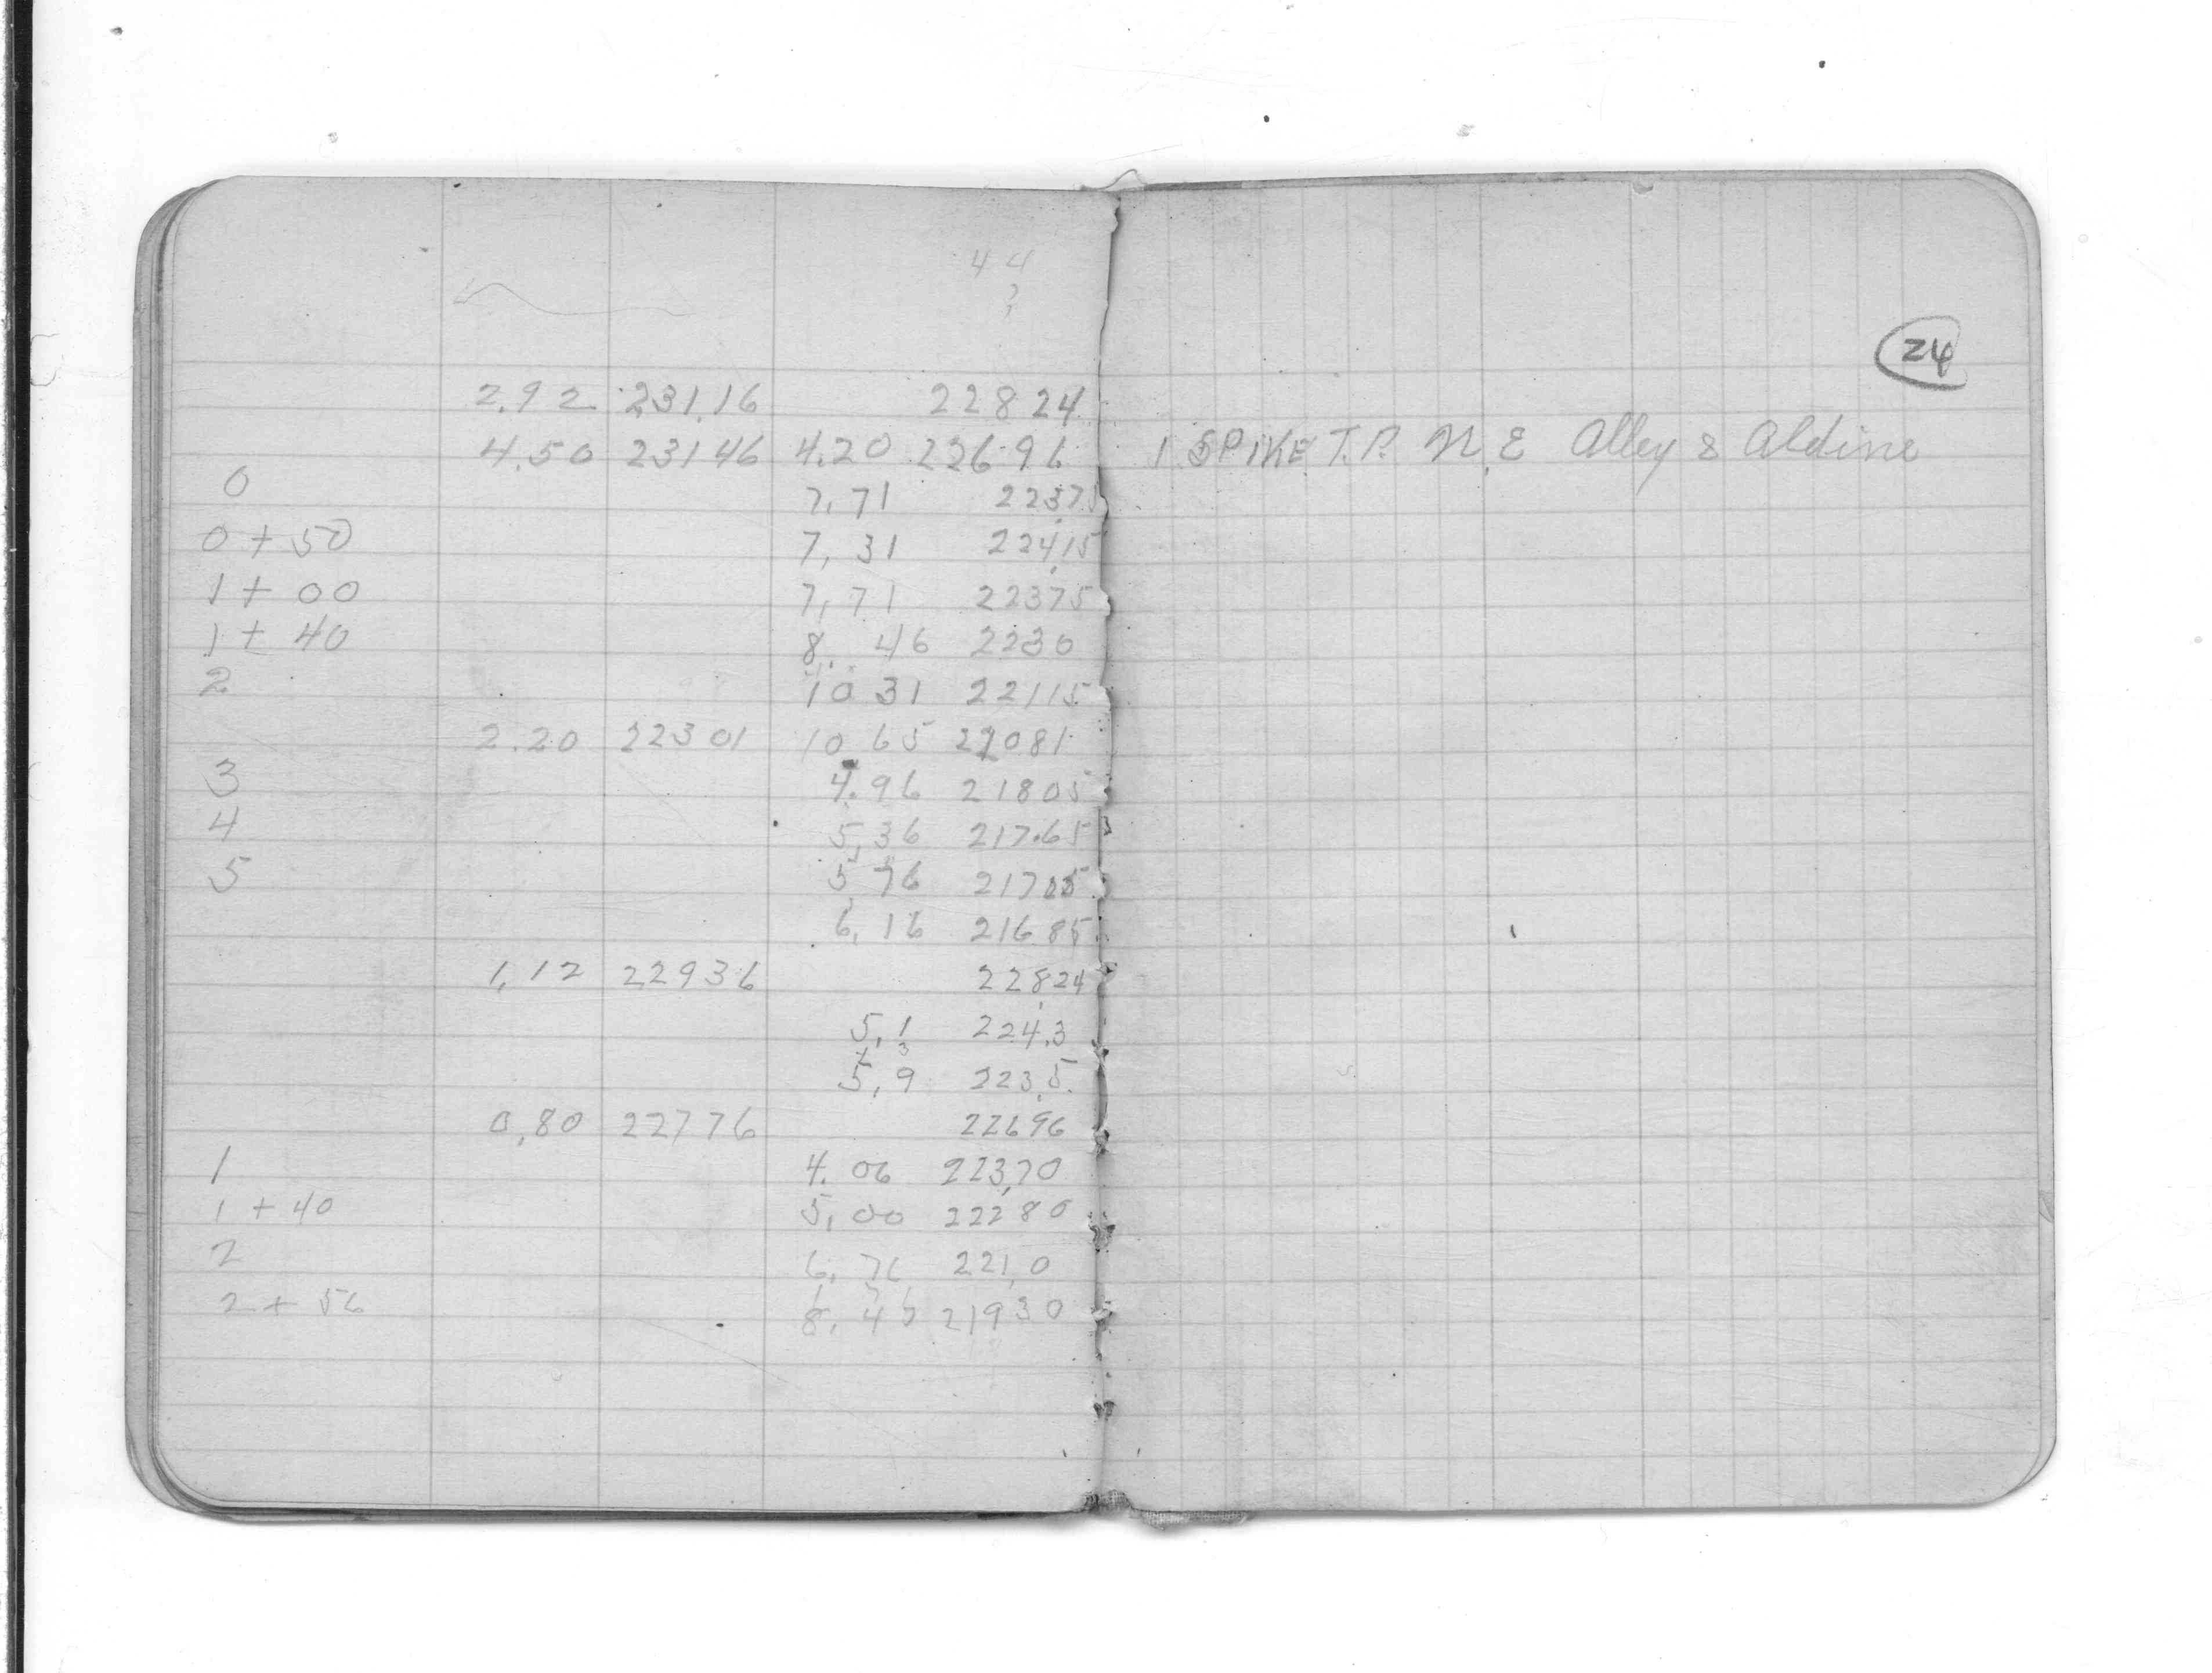 44
24
2.92 231.16 22824
4.50 23146 4.20 226.96 1 SPIKE T.P. N.E Alley & Aldine
0 7,71 22375
0 + 50 7,31 224,15
1 + 00 7,71 22375
1 + 40 8.46 2230
2 10 31 22115
2.20 22301 10 65 22081
3 4.96 21805
4 5,36 217.65
5 5 76 21705
6,16 21685
1,12 22936 22824
5,1 224.3
5,9 223,5
0,80 22776 22696
1 4.06 223,70
1 + 40 5,00 22280
2 6,76 221,0
2 + 56 8,46 21930